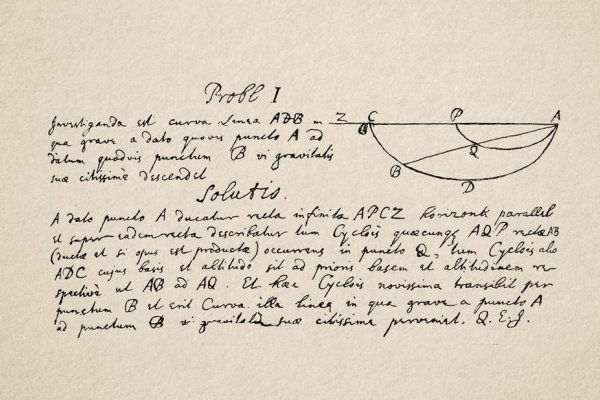 Probl I
Investiganda est curva Linea ADB in
qua grave a dato quovis puncto A ad
datum quodvis punctum B vi gravitatis
suæ citissimè descendet
Z C P A
B Q
B D
Solutio.
A dato puncto A ducatur recta infinita APCZ horizonti parallel
et super eadem recta describatur tum Cyclois quæcunq AQP rectæ AB
(ductæ et si opus est productæ) occurrens in puncto Q, tum Cyclois alia
ADC cujus basis et altitudo sit ad prioris basem et altitudinem re-
spectivè ut AB ad AQ. Et hæc Cyclois novissima transibit per
punctum B et erit Curva illa linea in qua grave a puncto A
ad punctum B vi gravitatis suæ citissime perveniet. Q.E.I.